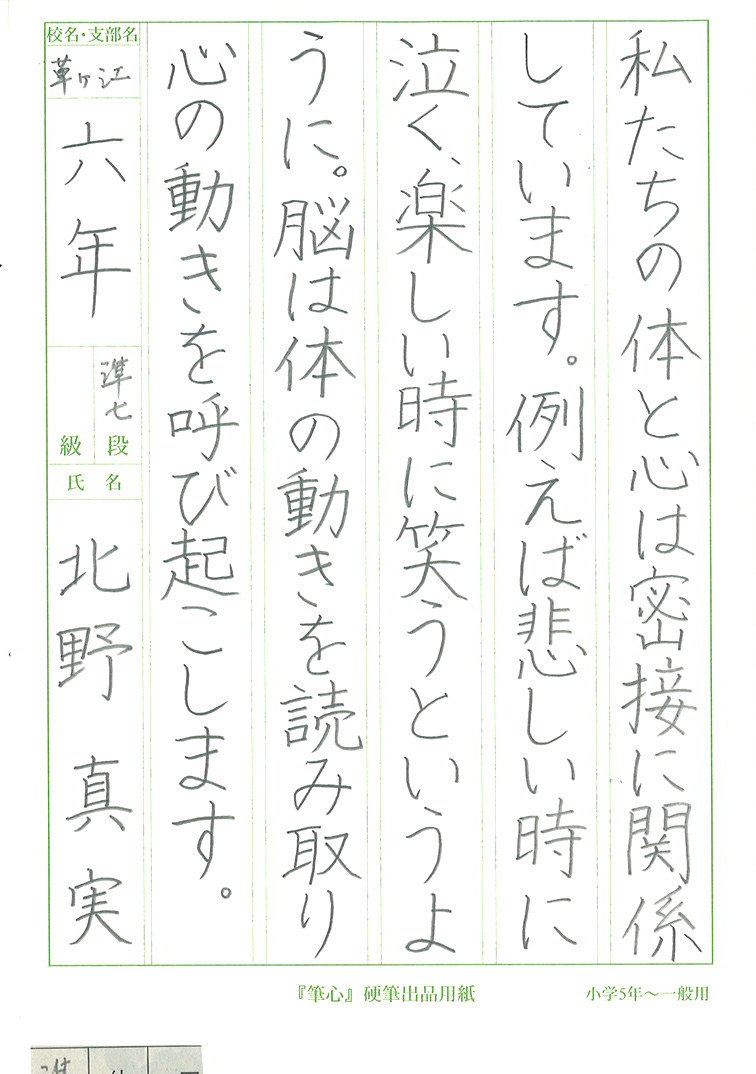 私たちの体と心は密接に関係
しています。例えば悲しい時に
泣く、楽しい時に笑うというよ
うに。脳は体の動きを読み取り
心の動きを呼び起こします。
校名・支部名
草ヶ江
六年
準七
段
級
氏名
北野真実
『筆心』硬筆出品用紙
小学5年～一般用